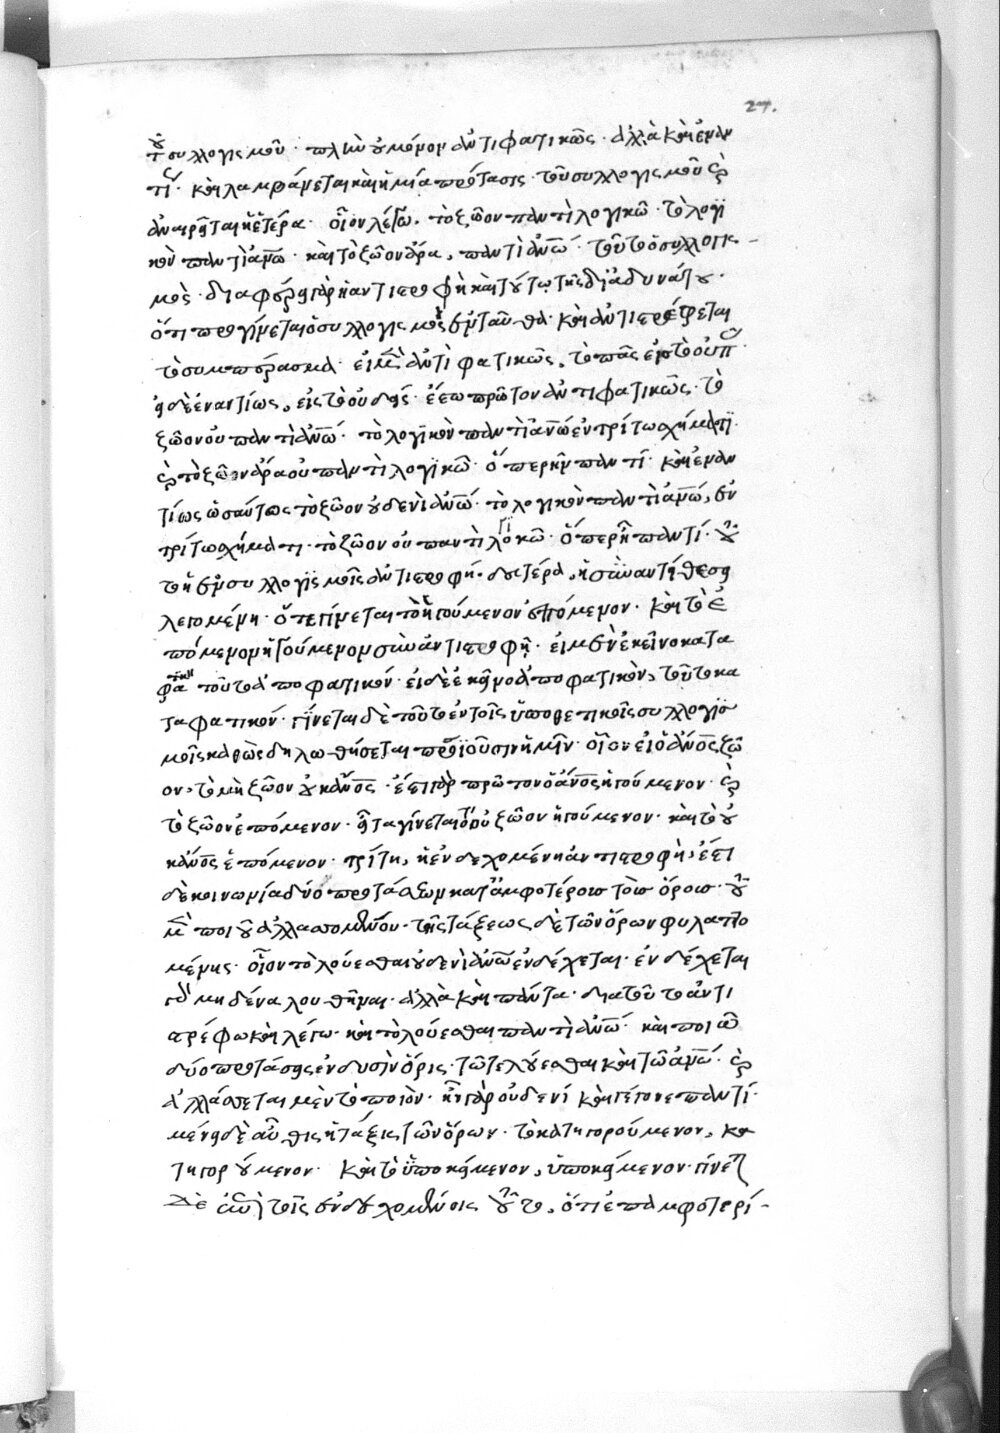 27.
τοῦ συλλογισμοῦ· πλὴν οὐ μόνον ἀντιφατικῶς· ἀλλὰ καὶ ἐναν
τί(ως)· καὶ λαμβάνεται καὶ ἡ μία πρότασις τοῦ συλλογισμοῦ καὶ
ἀναιρεῖται ἡ ἑτέρα· οἷον λέγω. τὸ ζῶον παντὶ λογικῶ· τὸ λογι
κὸν παντὶ ἀνω· καὶ τὸ ζῶον ἄρα, παντὶ ἀνω· τοῦτο συλλογισ-
μὸς· διαφέρει γὰρ ἡ ἀντιστροφὴ κατὰ τοῦτο τῆς διὰ ἀδυνάτου·
ὅτι προγίνεται ὁ συλλογισμὸς ἐνταῦθα· καὶ ἀντιστρέφεται
τὸ συμπέρασμα· εἰ μὲν ἀντιφατικῶς, τὸ πᾶς εἰς τὸ οὐ π(ᾶς)·
εἰ δὲ ἐναντίως, εἰς τὸ οὐδείς· ἔστω πρῶτον ἀντιφατικῶς· τὸ
ζῶον οὐ παντὶ ἀνω· τὸ λογικὸν παντὶ ἀνω ἐν τρίτω σχήματι·
καὶ τὸ ζῶον ἄρα οὐ παντὶ λογικῶ· ὅπερ ἦν παντί· καὶ ἐναν
τίως ὡσαύτως τὸ ζῶον οὐδενὶ ἀνω· τὸ λογικὸν παντὶ ἀνω, ἐν
τρίτω σχήματι· τὸ ζῶον οὐ παντὶ λογικῶ· ὅπερ ἦν παντί·
τῆ ἐν συλλογισμοῖς ἀντιστροφῆ· δευτέρα, ἡ σὺν ἀντιθέσει
λεγομένη· ὅτε γίνεται τὸ ἡγούμενον ἑπόμενον· καὶ τὸ ἑ
πόμενον ἡγούμενον σὺν ἀντιστροφῆ· εἰ μὲν ἐκεῖνο κατα
φατικὸν τοῦτο ἀποφατικόν· εἰ δὲ ἐκεῖνο ἀποφατικὸν, τοῦτο κα
ταφατικόν· γίνεται δὲ τοῦτο ἐν τοῖς ὑποθετικοῖς συλλογισ
μοῖς καθὼς δηλωθήσεται προϊοῦσιν ἡμῖν· οἷον εἰ ὁ ἄνος ζῶ
ον, τὸ μὴ ζῶον οὐκ ἄνος· ἔστι γὰρ πρῶτον ὁ ἄνος ἡγούμενον· καὶ
τὸ ζῶον ἑπόμενον· εἶτα γίνεται τὸ οὐ ζῶον ἡγούμενον· καὶ τὸ οὐκ
ἄνος ἑπόμενον· τρίτη, ἡ ἐνδεχομένη ἀντιστροφὴ, ἔστι
δὲ κοινωνία δύο προτάσεων κατ' ἀμφοτέρους τοὺς ὅρους· τοῦ
μὲν ποιοῦ ἀλλασσομένου· τῆς τάξεως δὲ τῶν ὅρων φυλαττο
μένης· οἷον τὸ λούεσθαι οὐδενὶ ἀνω ἐνδέχεται· ἐνδέχεται
γὰρ μηδένα λουθῆναι· ἀλλὰ καὶ πάντα· διὰ τοῦτο ἀντι
στρέφω καὶ λέγω· καὶ τὸ λούεσθαι παντὶ ἀνω· καὶ ποιῶ
δύο προτάσεις ἐν δυσὶν ὅροις· τῶ τε λούεσθαι καὶ τῶ ἀνω· καὶ
ἀλλάσσεται μὲν τὸ ποιόν· ἦν γὰρ οὐδενί καὶ γέγονε παντί·
μένει δὲ αὖθις ἡ τάξις τῶν ὅρων· τὸ κατηγορούμενον, κα
τηγορούμενον· καὶ τὸ ὑποκείμενον, ὑποκείμενον· γίνετ(αι)
δὲ ἐπὶ τοῖς ἐνδεχομένοις τοῦτο, ὅτι ἐπαμφοτερί-